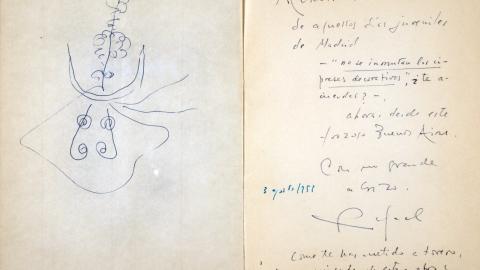 de aquellos días juveniles
de Madrid
– "no se inventan los ci-
preses decorativos", ¿te a-
cuerdas? –,
ahora, desde este
forzoso Buenos Aires.
Con un grande
abrazo.
3 agosto/955
Rafael
Como te has metido a torero,